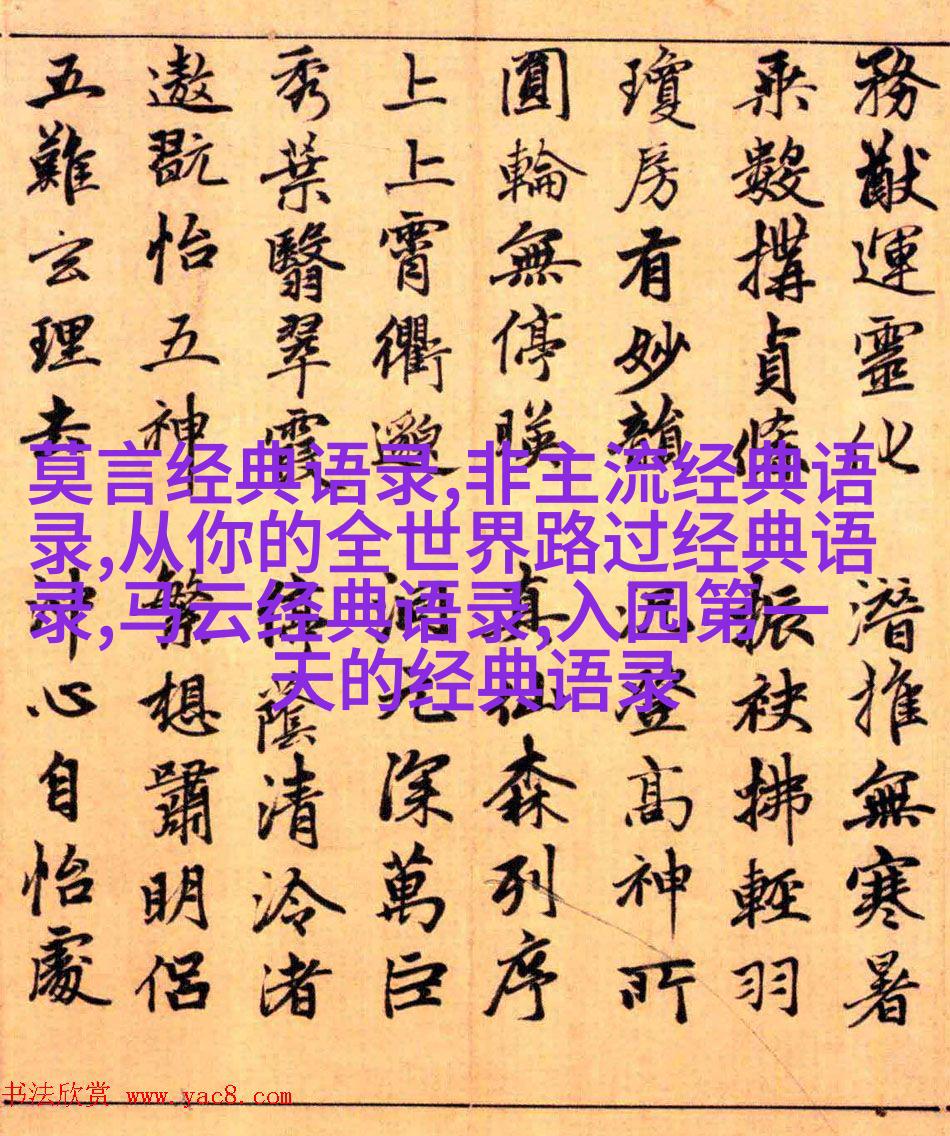 務猷運靈化 潛推無寒暑
乘數構貞條 振袂拂輕羽
瓊房有妙韻 登高神所
圓輪無停暎 真仙森列序
上上霄衢邈 洞元深萬巨
秀葉翳翠霞 停蔭清泠渚
遨翫怡五神 繁想嘯明侶
五難玄理去 冲心自怡處
莫言经典语录,非主流经典语
录,从你的全世界路过经典语
录,马云经典语录,入园第一
天的经典语录
书法欣赏 www.yac8.com